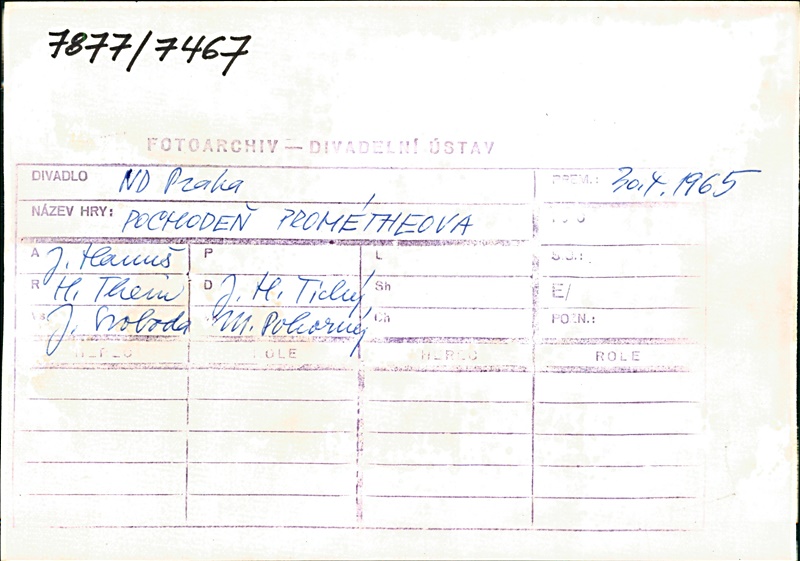 7877/7467
FOTOARCHIV — DIVADELNÍ ÚSTAV
DIVADLO ND Praha
PREM.: 30.4.1965
NÁZEV HRY: POCHODEŇ PROMÉTHEOVA
FOTO
A J. Hanuš P L S.J.:
R H. Thein D J. H. Tichý Sh E/
J. Svoboda M. Pokorný Ch POZN.:
HEREC ROLE HEREC ROLE